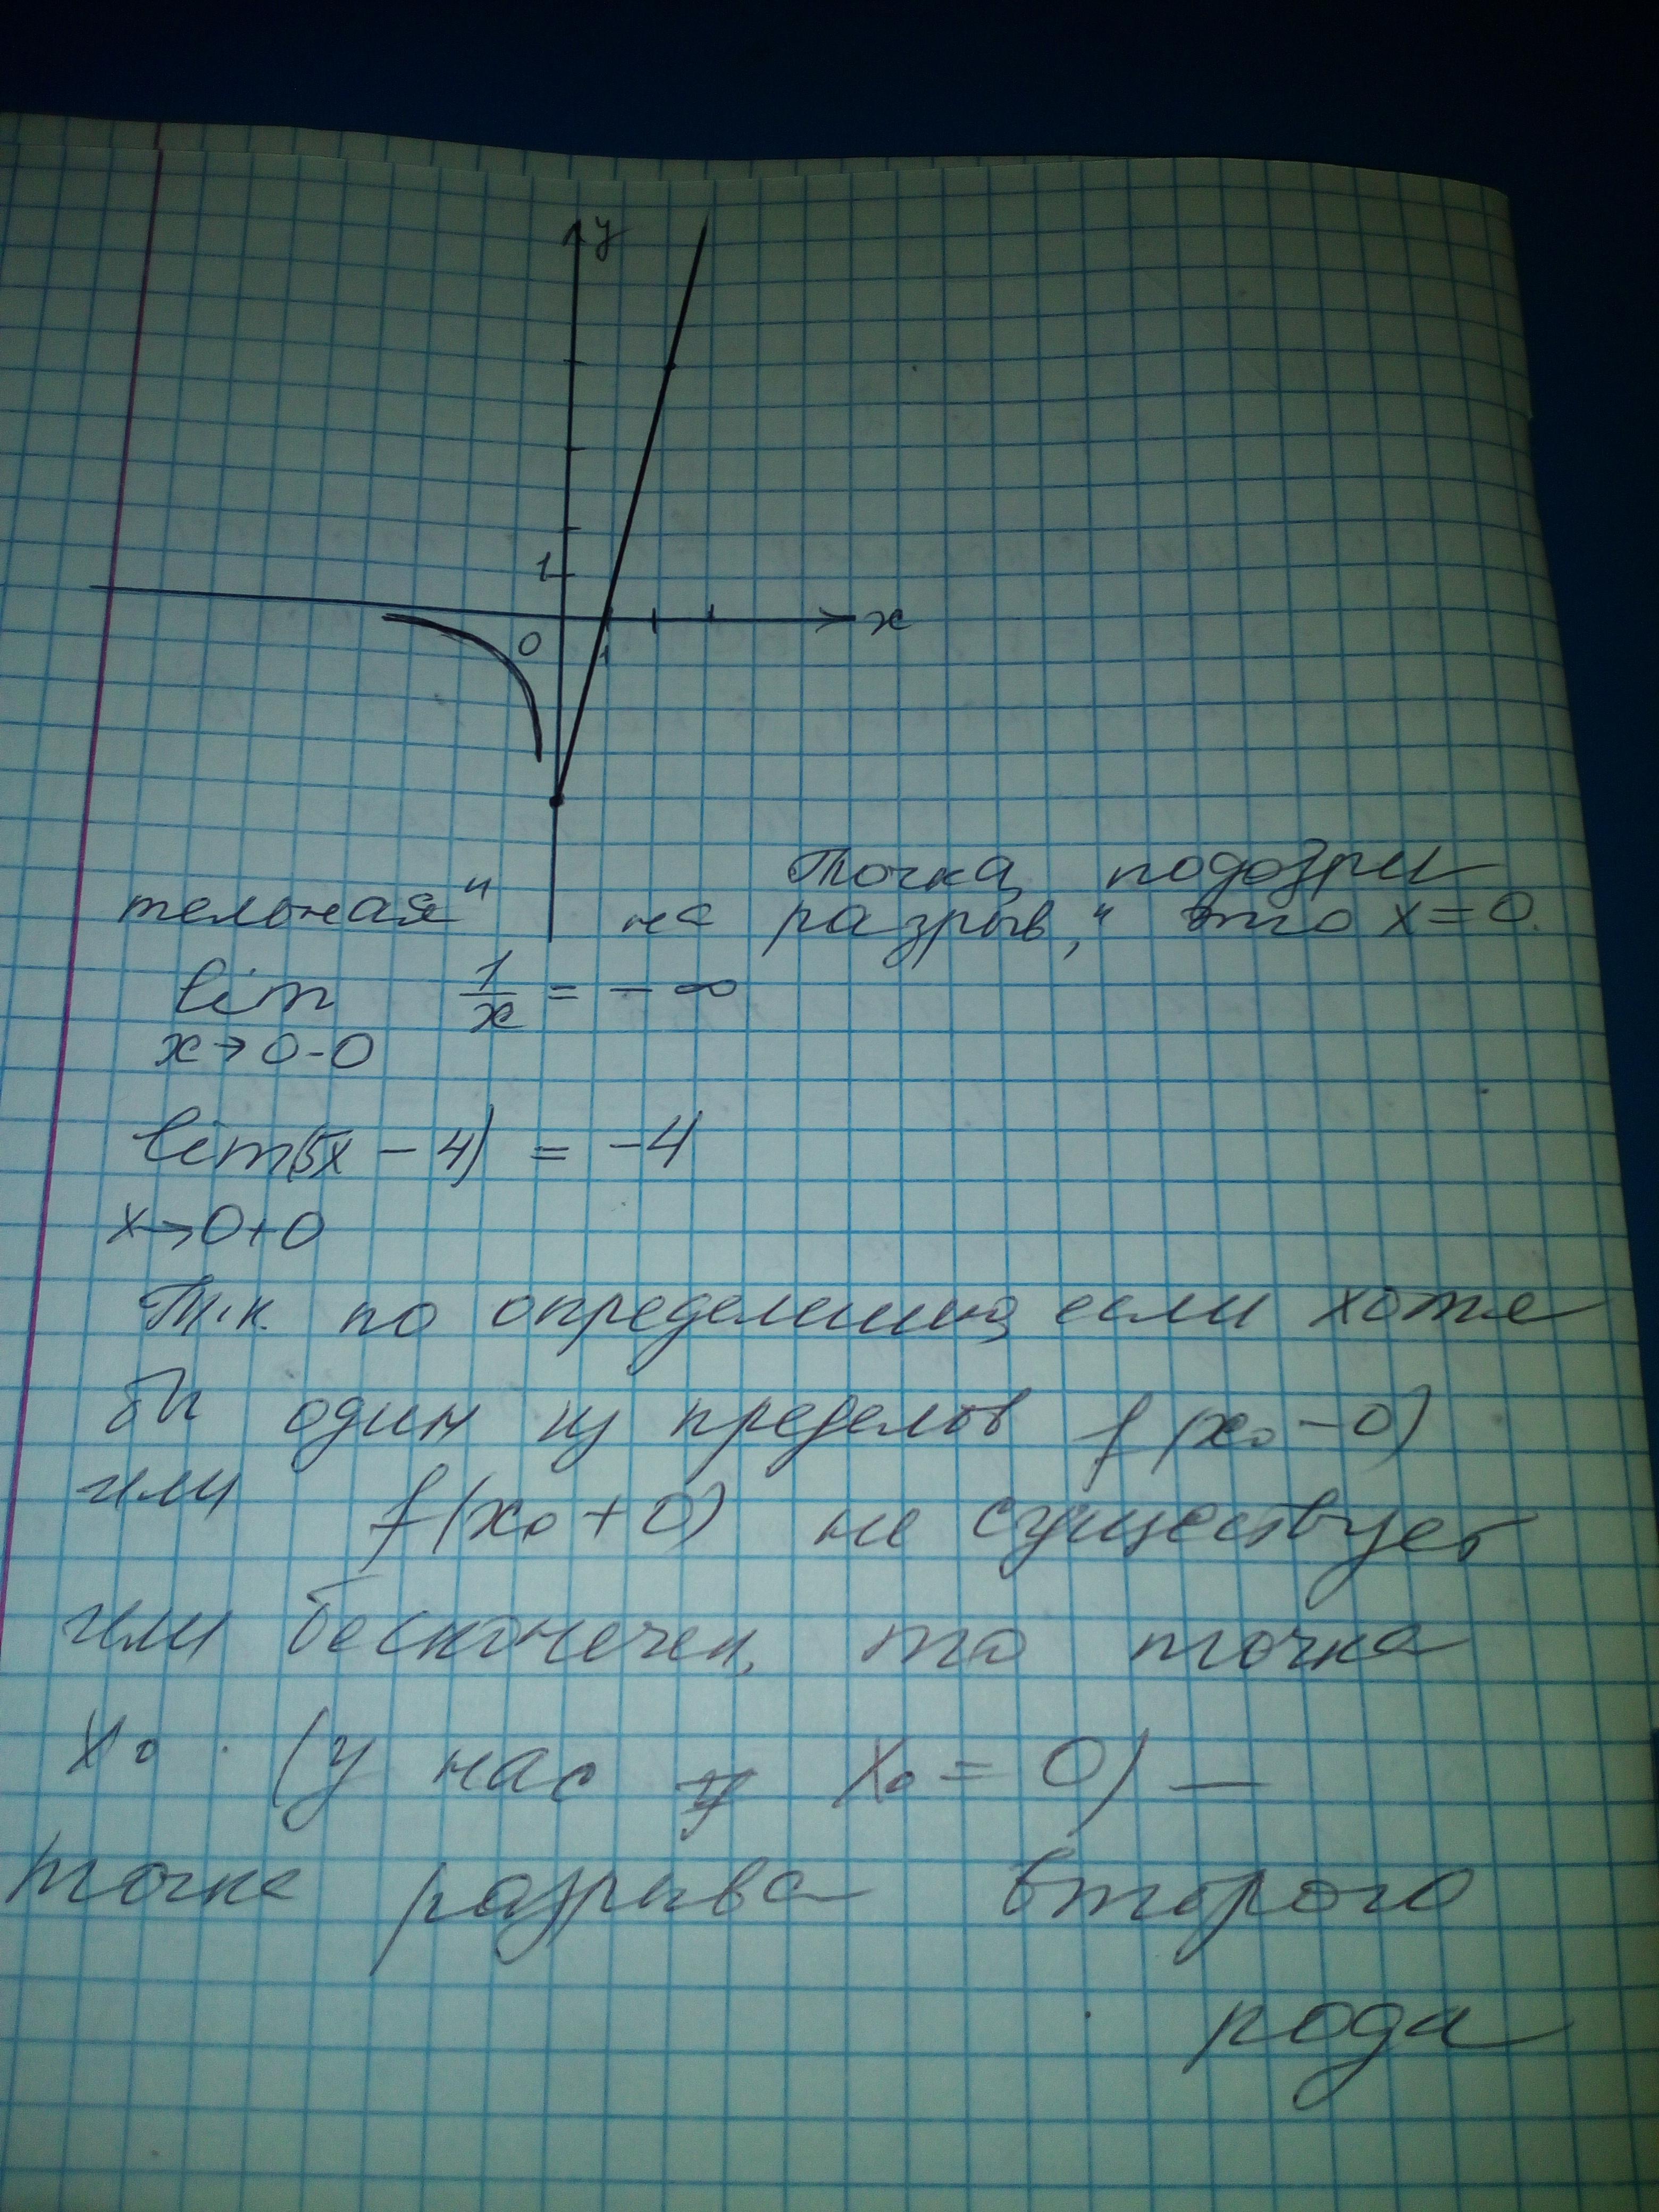 y
1
0
1
x
Точка, "подозри
тельная" на разрыв," это x=0.
lim 1/x = -∞
x→0-0
lim(5x - 4) = -4
x→0+0
Т.к. по определению, если хотя
бы один из пределов f(x₀-0)
или f(x₀+0) не существует
или бесконечен, то точка
x₀ (у нас x₀=0) —
точка разрыва второго
рода